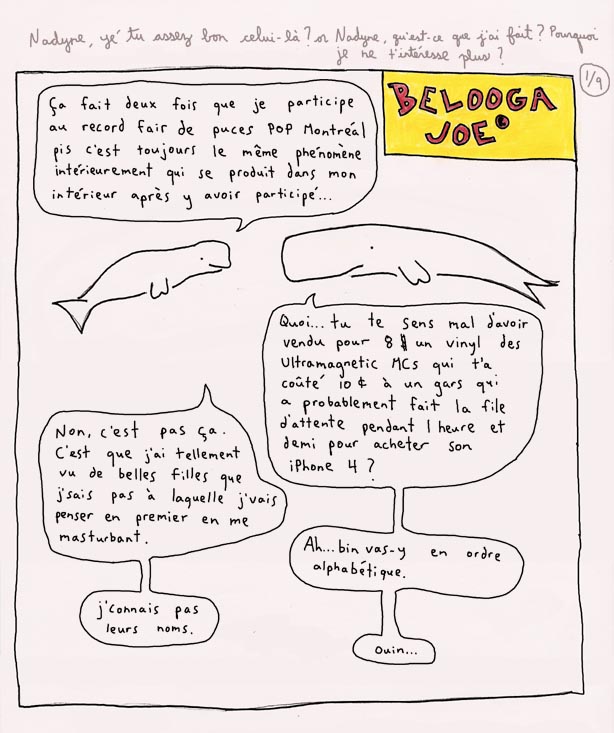 Nadyne, yé tu assez bon celui-là? or Nadyne, qu'est-ce que j'ai fait? Pourquoi
je ne t'intéresse plus?
1/9
BELOOGA
JOE
Ça fait deux fois que je participe
au record fair de puces POP Montréal
pis c'est toujours le même phénomène
intérieurement qui se produit dans mon
intérieur après y avoir participé...
Quoi... tu te sens mal d'avoir
vendu pour 8 $ un vinyl des
Ultramagnetic MCs qui t'a
coûté 10 ¢ à un gars qui
a probablement fait la file
d'attente pendant 1 heure et
demi pour acheter son
iPhone 4?
Non, c'est pas ça.
C'est que j'ai tellement
vu de belles filles que
j'sais pas à laquelle j'vais
penser en premier en me
masturbant.
Ah... bin vas-y en ordre
alphabétique.
j'connais pas
leurs noms.
Ouin...